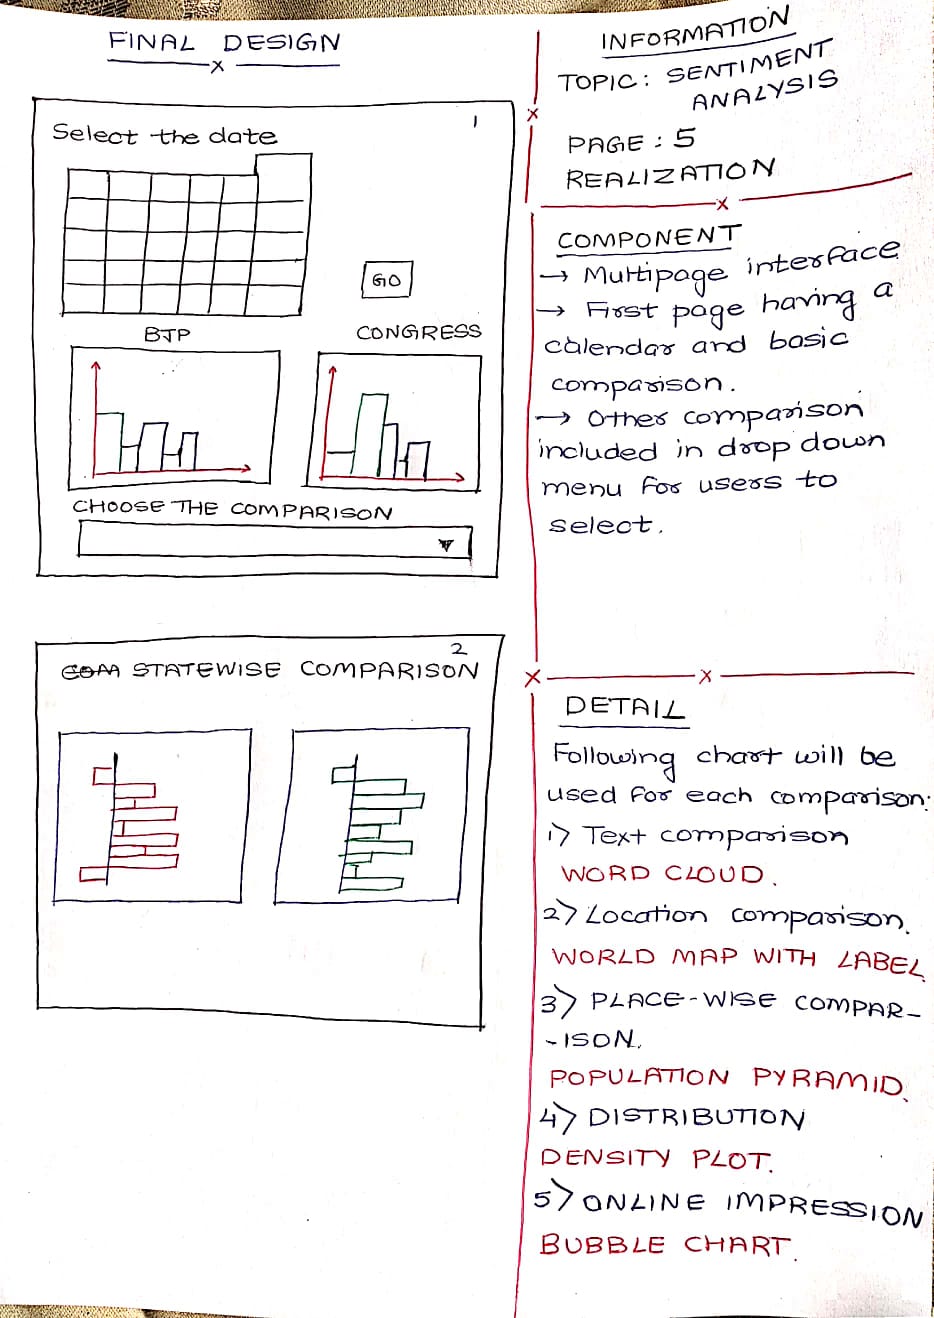 FINAL DESIGN
x
1
Select the date
GO
BJP
CONGRESS
CHOOSE THE COMPARISON
2
COM STATEWISE COMPARISON
INFORMATION
TOPIC: SENTIMENT
ANALYSIS
PAGE: 5
REALIZATION
COMPONENT
→ Multipage interface
→ First page having a
calendar and basic
comparison.
→ Other comparison
included in drop down
menu for users to
select.
DETAIL
Following chart will be
used for each comparison:
1) Text comparison
WORD CLOUD.
2) Location comparison.
WORLD MAP WITH LABEL
3) PLACE-WISE COMPAR-
-ISON.
POPULATION PYRAMID.
4) DISTRIBUTION
DENSITY PLOT.
5) ONLINE IMPRESSION
BUBBLE CHART.